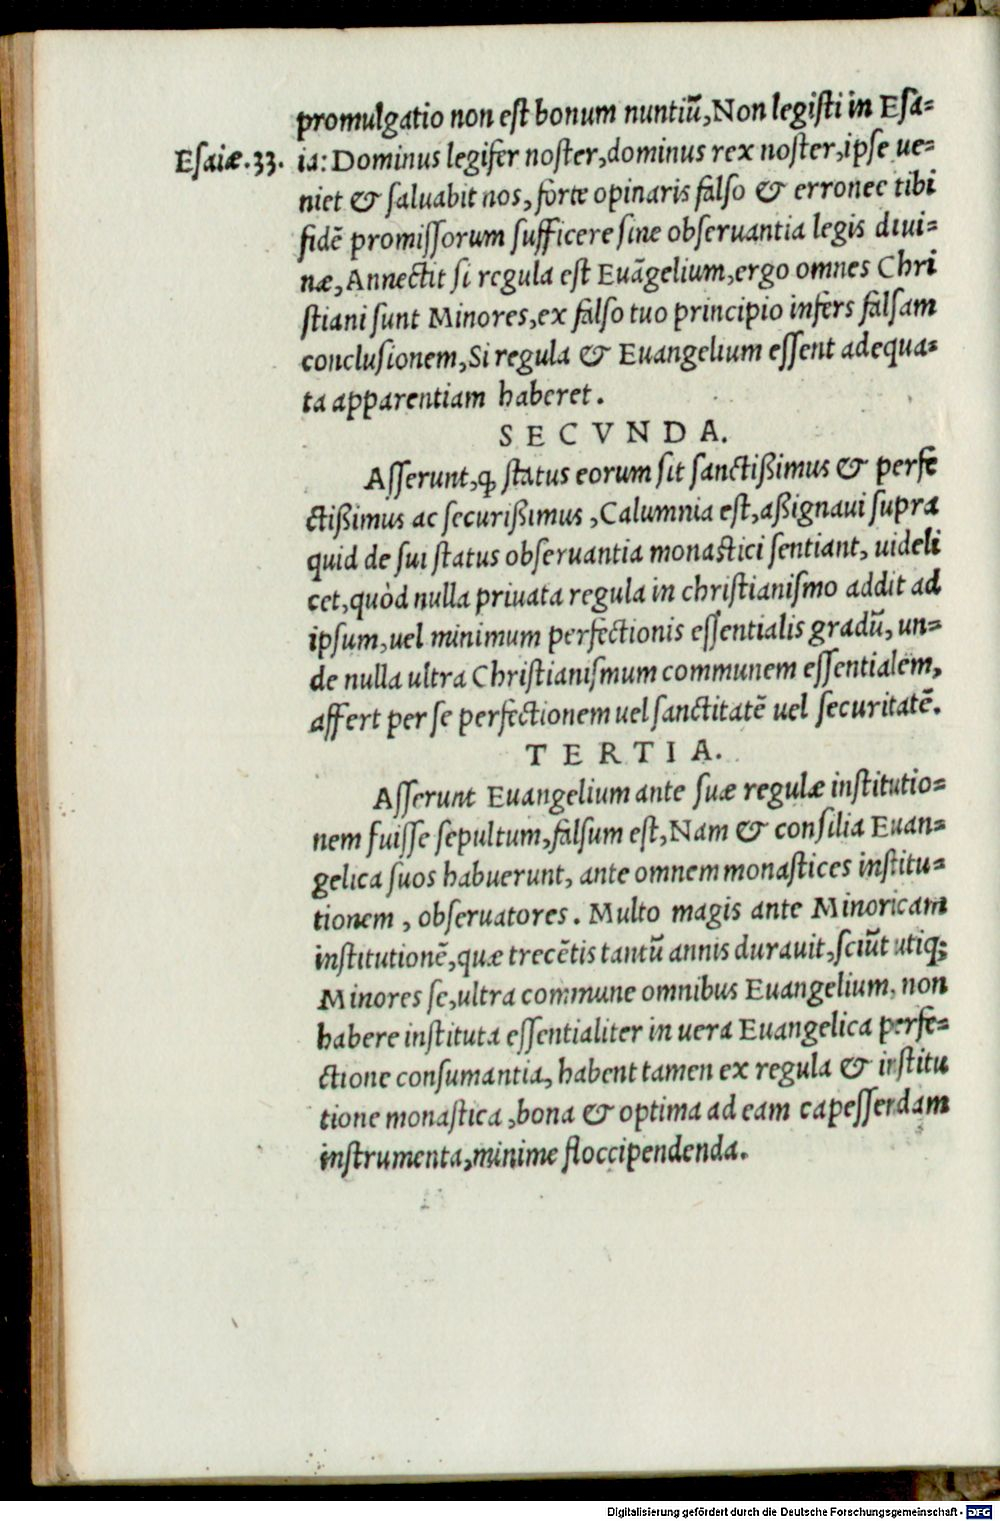 promulgatio non est bonum nuntiũ, Non legisti in Esa-
Esaiæ. 33. ia: Dominus legifer noster, dominus rex noster, ipse ue-
niet & saluabit nos, forte opinaris falso & erronee tibi
fidẽ promissorum sufficere sine obseruantia legis diui-
næ, Annectit si regula est Euãgelium, ergo omnes Chri
stiani sunt Minores, ex falso tuo principio infers falsam
conclusionem, Si regula & Euangelium essent adequa-
ta apparentiam haberet.
SECVNDA.
Asserunt, ꝙ status eorum sit sanctißimus & perfe
ctißimus ac securißimus, Calumnia est, aßignaui supra
quid de sui status obseruantia monastici sentiant, uideli
cet, quòd nulla priuata regula in christianismo addit ad
ipsum, uel minimum perfectionis essentialis gradũ, un-
de nulla ultra Christianismum communem essentialem,
affert per se perfectionem uel sanctitatẽ uel securitatẽ.
TERTIA.
Asserunt Euangelium ante suæ regulæ institutio-
nem fuisse sepultum, falsum est, Nam & consilia Euan-
gelica suos habuerunt, ante omnem monastices institu-
tionem, obseruatores. Multo magis ante Minoricam
institutionẽ, quæ trecẽtis tantũ annis durauit, sciũt utiq;
Minores se, ultra commune omnibus Euangelium, non
habere instituta essentialiter in uera Euangelica perfe-
ctione consumantia, habent tamen ex regula & institu
tione monastica, bona & optima ad eam capessendam
instrumenta, minime floccipendenda.
Digitalisierung gefördert durch die Deutsche Forschungsgemeinschaft - DFG